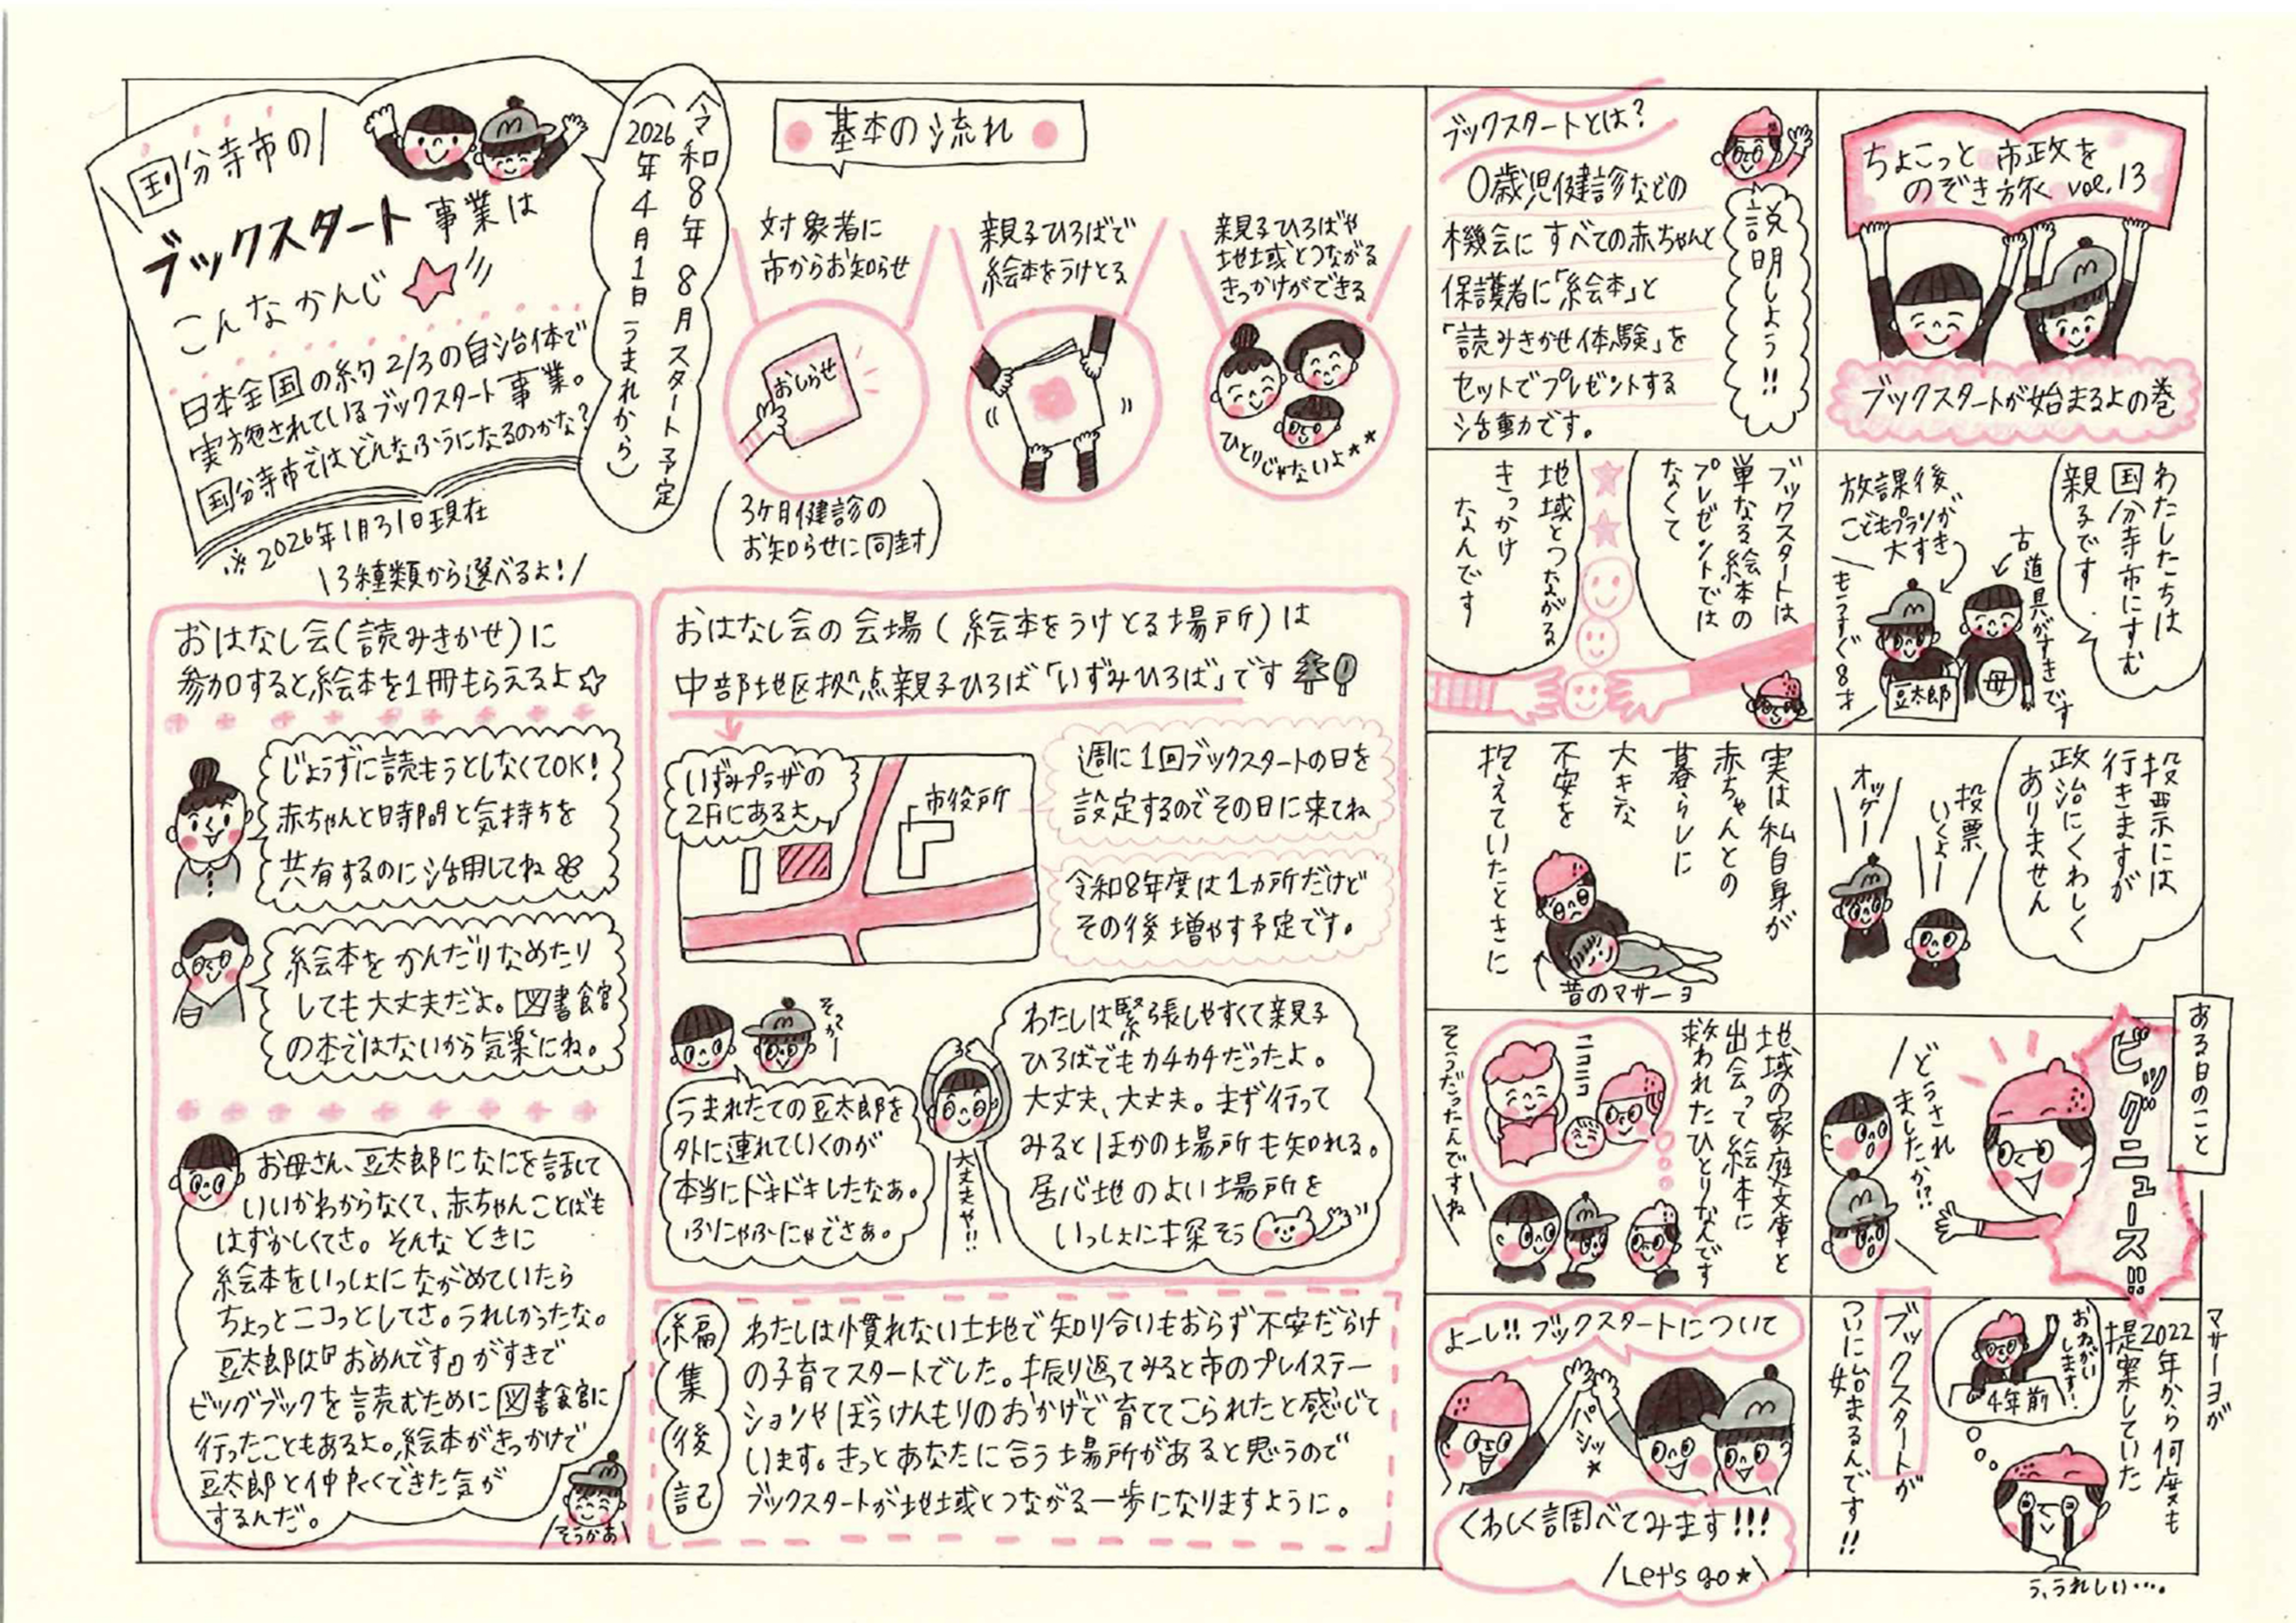 ちょこっと市政を
のぞき旅 vol.13
ブックスタートが始まるよの巻
わたしたちは
国分寺市にすむ
親子です
放課後
こどもプランが
大すき
もうすぐ8才
豆太郎
古道具がすきです
母
投票には
行きますが
政治にくわしく
ありません
投票
いくよー
オッケー
ある日のこと
ビッグニュース!!
どうされ
ましたか!?
マサーヨが
2022年から何度も
提案していた
おねがい
します!
4年前
ブックスタートが
ついに始まるんです!!
う、うれしい…。
ブックスタートとは?
0歳児健診などの
機会に すべての赤ちゃんと
保護者に「絵本」と
「読みきかせ体験」を
セットでプレゼントする
活動です。
説明しよう!!
ブックスタートは
単なる絵本の
プレゼントでは
なくて
地域とつながる
きっかけ
なんです
実は私自身が
赤ちゃんとの
暮らしに
大きな
不安を
抱えていたときに
昔のマサーヨ
地域の家庭文庫と
出会って絵本に
救われたひとりなんです
ニコニコ
そうだったんですね
よーし!! ブックスタートについて
パシッ★
くわしく調べてみます!!!
Let's go★
国分寺市の
ブックスタート事業は
こんなかんじ
日本全国の約2/3の自治体で
実施されているブックスタート事業。
国分寺市ではどんなふうになるのかな?
※2026年1月31日現在
令和8年8月スタート予定
(2026年4月1日うまれから)
基本の流れ
対象者に
市からお知らせ
おしらせ
(3ケ月健診の
お知らせに同封)
親子ひろばで
絵本をうけとる
親子ひろばや
地域とつながる
きっかけができる
ひとりじゃないよ★★
3種類から選べるよ!
おはなし会(読みきかせ)に
参加すると絵本を1冊もらえるよ☆
じょうずに読もうとしなくてOK!
赤ちゃんと時間と気持ちを
共有するのに活用してね
絵本をかんだりなめたり
しても大丈夫だよ。図書館
の本ではないから気楽にね。
お母さん、豆太郎になにを話して
いいかわからなくて、赤ちゃんことばも
はずかしくてさ。そんなときに
絵本をいっしょにながめていたら
ちょっとニコっとしてさ。うれしかったな。
豆太郎は『おめんです』がすきで
ビッグブックを読むために図書館に
行ったこともあるよ。絵本がきっかけで
豆太郎と仲良くできた気が
するんだ。
そうかあ
おはなし会の会場(絵本をうけとる場所)は
中部地区拠点親子ひろば「いずみひろば」です
いずみプラザの
2Fにあるよ
市役所
週に1回ブックスタートの日を
設定するのでその日に来てね
令和8年度は1カ所だけど
その後増やす予定です。
そっかー
うまれたての豆太郎を
外に連れていくのが
本当にドキドキしたなあ。
ふにゃふにゃでさぁ。
大丈夫や!!
わたしは緊張しやすくて親子
ひろばでもカチカチだったよ。
大丈夫、大丈夫。まず行って
みるとほかの場所も知れる。
居心地のよい場所を
いっしょに探そう
編集後記
わたしは慣れない土地で知り合いもおらず不安だらけ
の子育てスタートでした。振り返ってみると市のプレイステー
ションやぼうけんもりのおかげで育ててこられたと感じて
います。きっとあなたに合う場所があると思うので
ブックスタートが地域とつながる一歩になりますように。